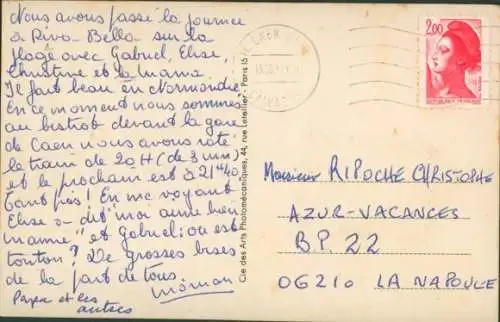 Nous avons passé la journée
à Riva-Bella sur la
plage avec Gabriel, Elise,
Christine et la mama.
Il fait beau en Normandie.
En ce moment nous sommes
au bistrob devant la gare
de Caen nous avons raté
le train de 20H (de 3 mn)
et le prochain est à 21H40
tant pis! En me voyant
Elise a dit "moi aime bien
mamie" et gabriel ou est
tonton? De grosses bises
de la part de tous.
maman
Papa et les
autres
Cie des Arts Photomécaniques, 44, rue Letellier - Paris 15
CAEN
CALVADOS
2,00
REPUBLIQUE FRANÇAISE
Monsieur RIPOCHE CHRISTOPHE
AZUR-VACANCES
B.P. 22
06210 LA NAPOULE